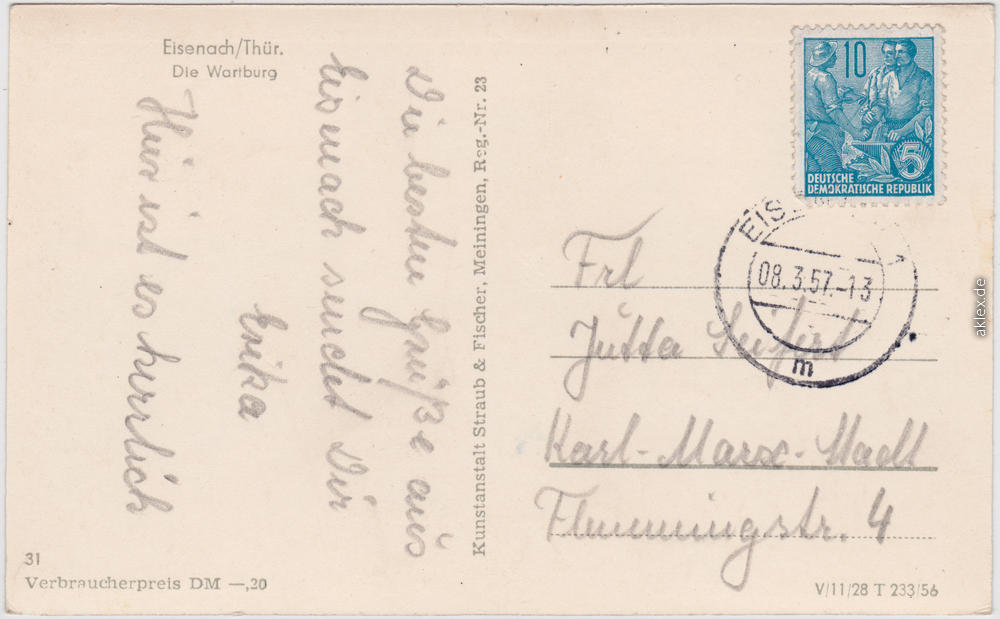 Eisenach/Thür.
Die Wartburg
Die besten Grüße aus
Eisenach sendet Dir
Erika
Hier ist es herrlich
Kunstanstalt Straub & Fischer, Meiningen, Reg.-Nr. 23
10
5
DEUTSCHE
DEMOKRATISCHE REPUBLIK
EIS
08.3.57.-13
m
Frl
Jutta Seifert
Karl-Marx-Stadt
Flemmingstr. 4
31
Verbraucherpreis DM —,20
V/11/28 T 233/56
aklex.de